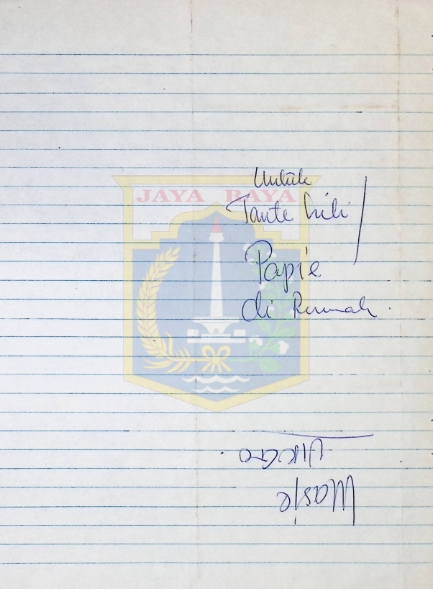 JAYA RAYA
Untuk
Tante Lili /
Papie
di Rumah.
Masje